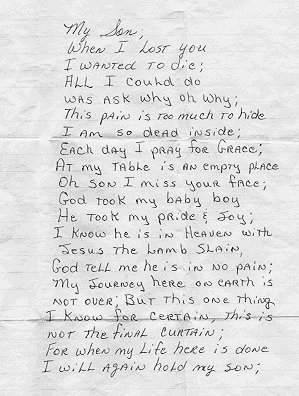 My Son,
When I Lost you
I wanted to die;
ALL I could do
was ask why oh why;
This pain is too much to hide
I am so dead inside;
Each day I pray for Grace;
At my table is an empty place
Oh Son I miss your face;
God took my baby boy
He took my pride & Joy;
I know he is in Heaven with
Jesus the Lamb Slain,
God tell me he is in no pain;
My Journey here on earth is
not over; But this one thing
I know for certain, this is
not the final curtain;
For when my Life here is done
I will again hold my son;